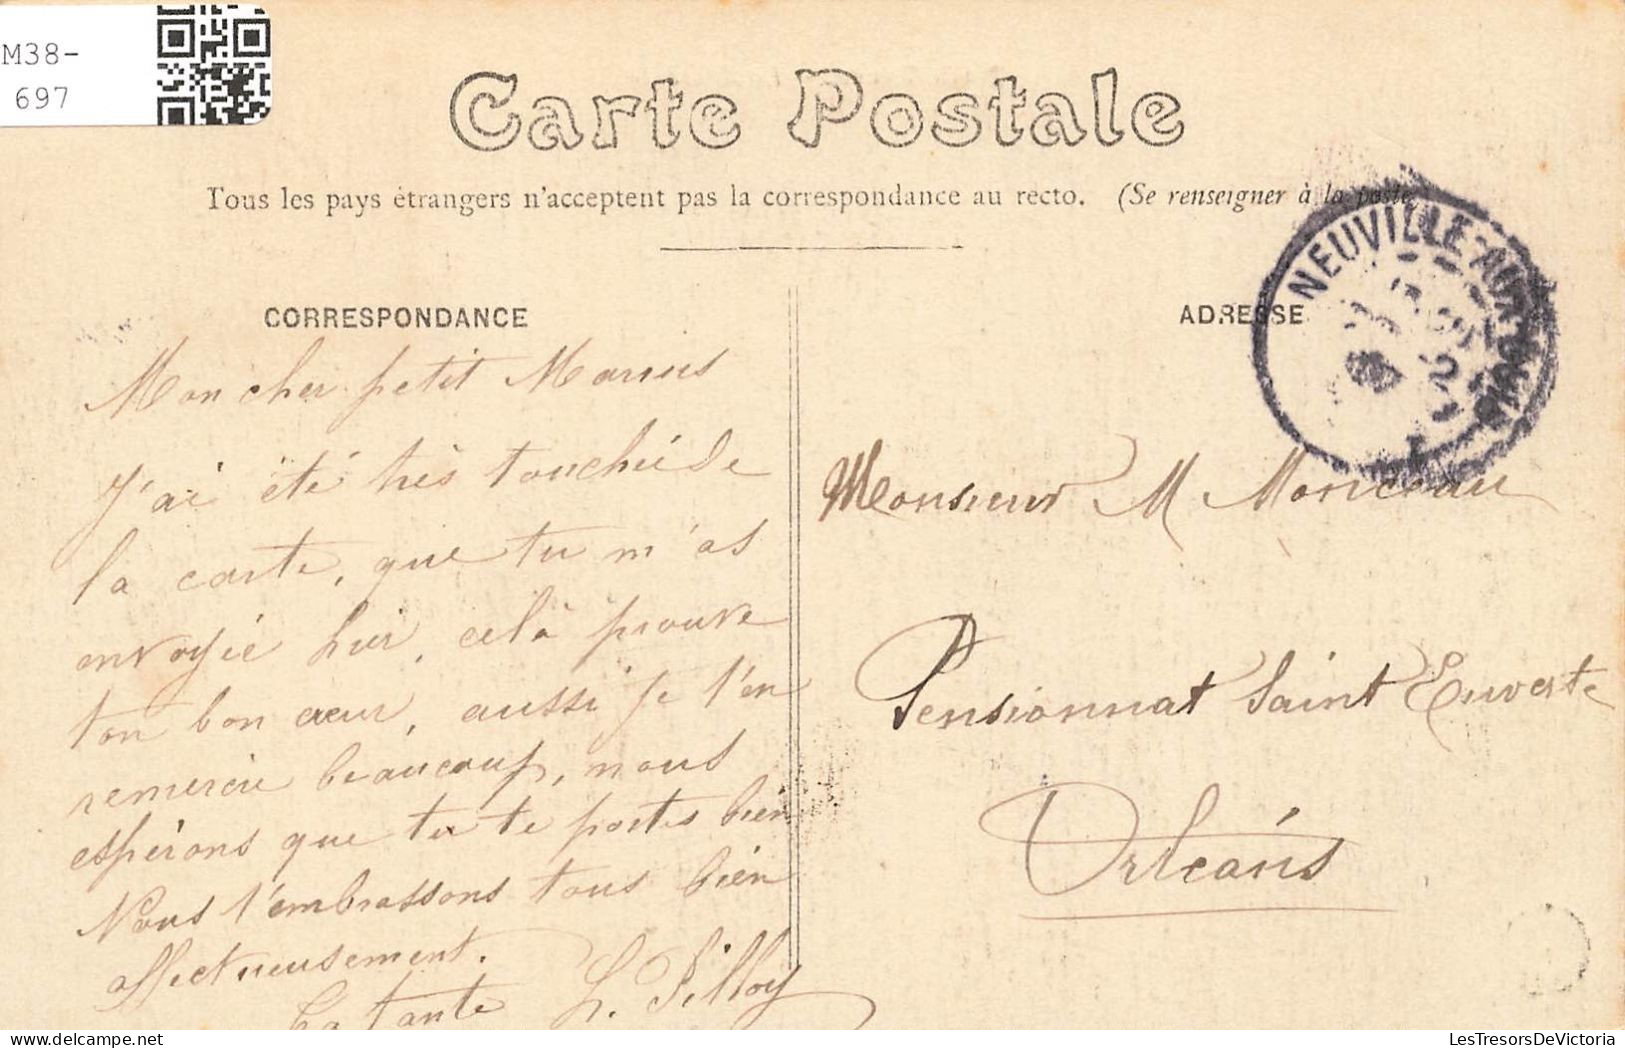 M38-
697
Carte Postale
Tous les pays étrangers n'acceptent pas la correspondance au recto. (Se renseigner à la poste
NEUVILLE-AUX-BOIS
CORRESPONDANCE
ADRESSE
Mon cher petit Marius
J'ai été très touchée de
la carte, que tu m'as
envoyée hier, celà prouve
ton bon cœur, aussi je t'en
remercie beaucoup, nous
espérons que tu te portes bien
Nous t'embrassons tous bien
affectueusement.
Ta tante L. Pilloy
Monsieur M Monceau
Pensionnat Saint Euverte
Orléans
LesTresorsDeVictoria